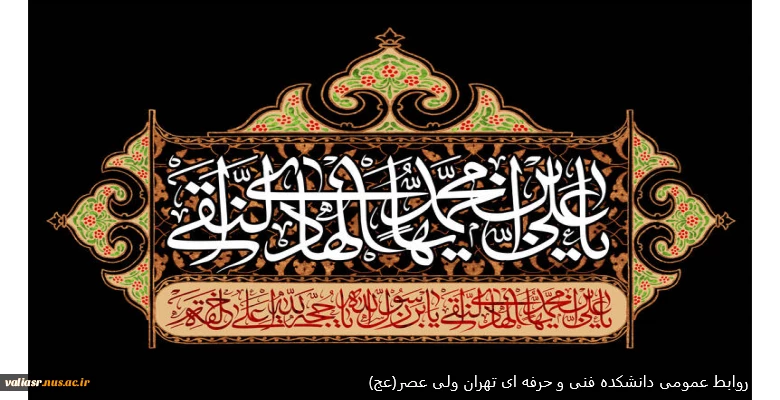 یا علی بن محمد ایها الهادی النقی
یا علی بن محمد ایها الهادی النقی یابن رسول الله یا حجة الله علی خلقه
روابط عمومی دانشکده فنی و حرفه ای تهران ولی عصر(عج)
valiasr.nus.ac.ir